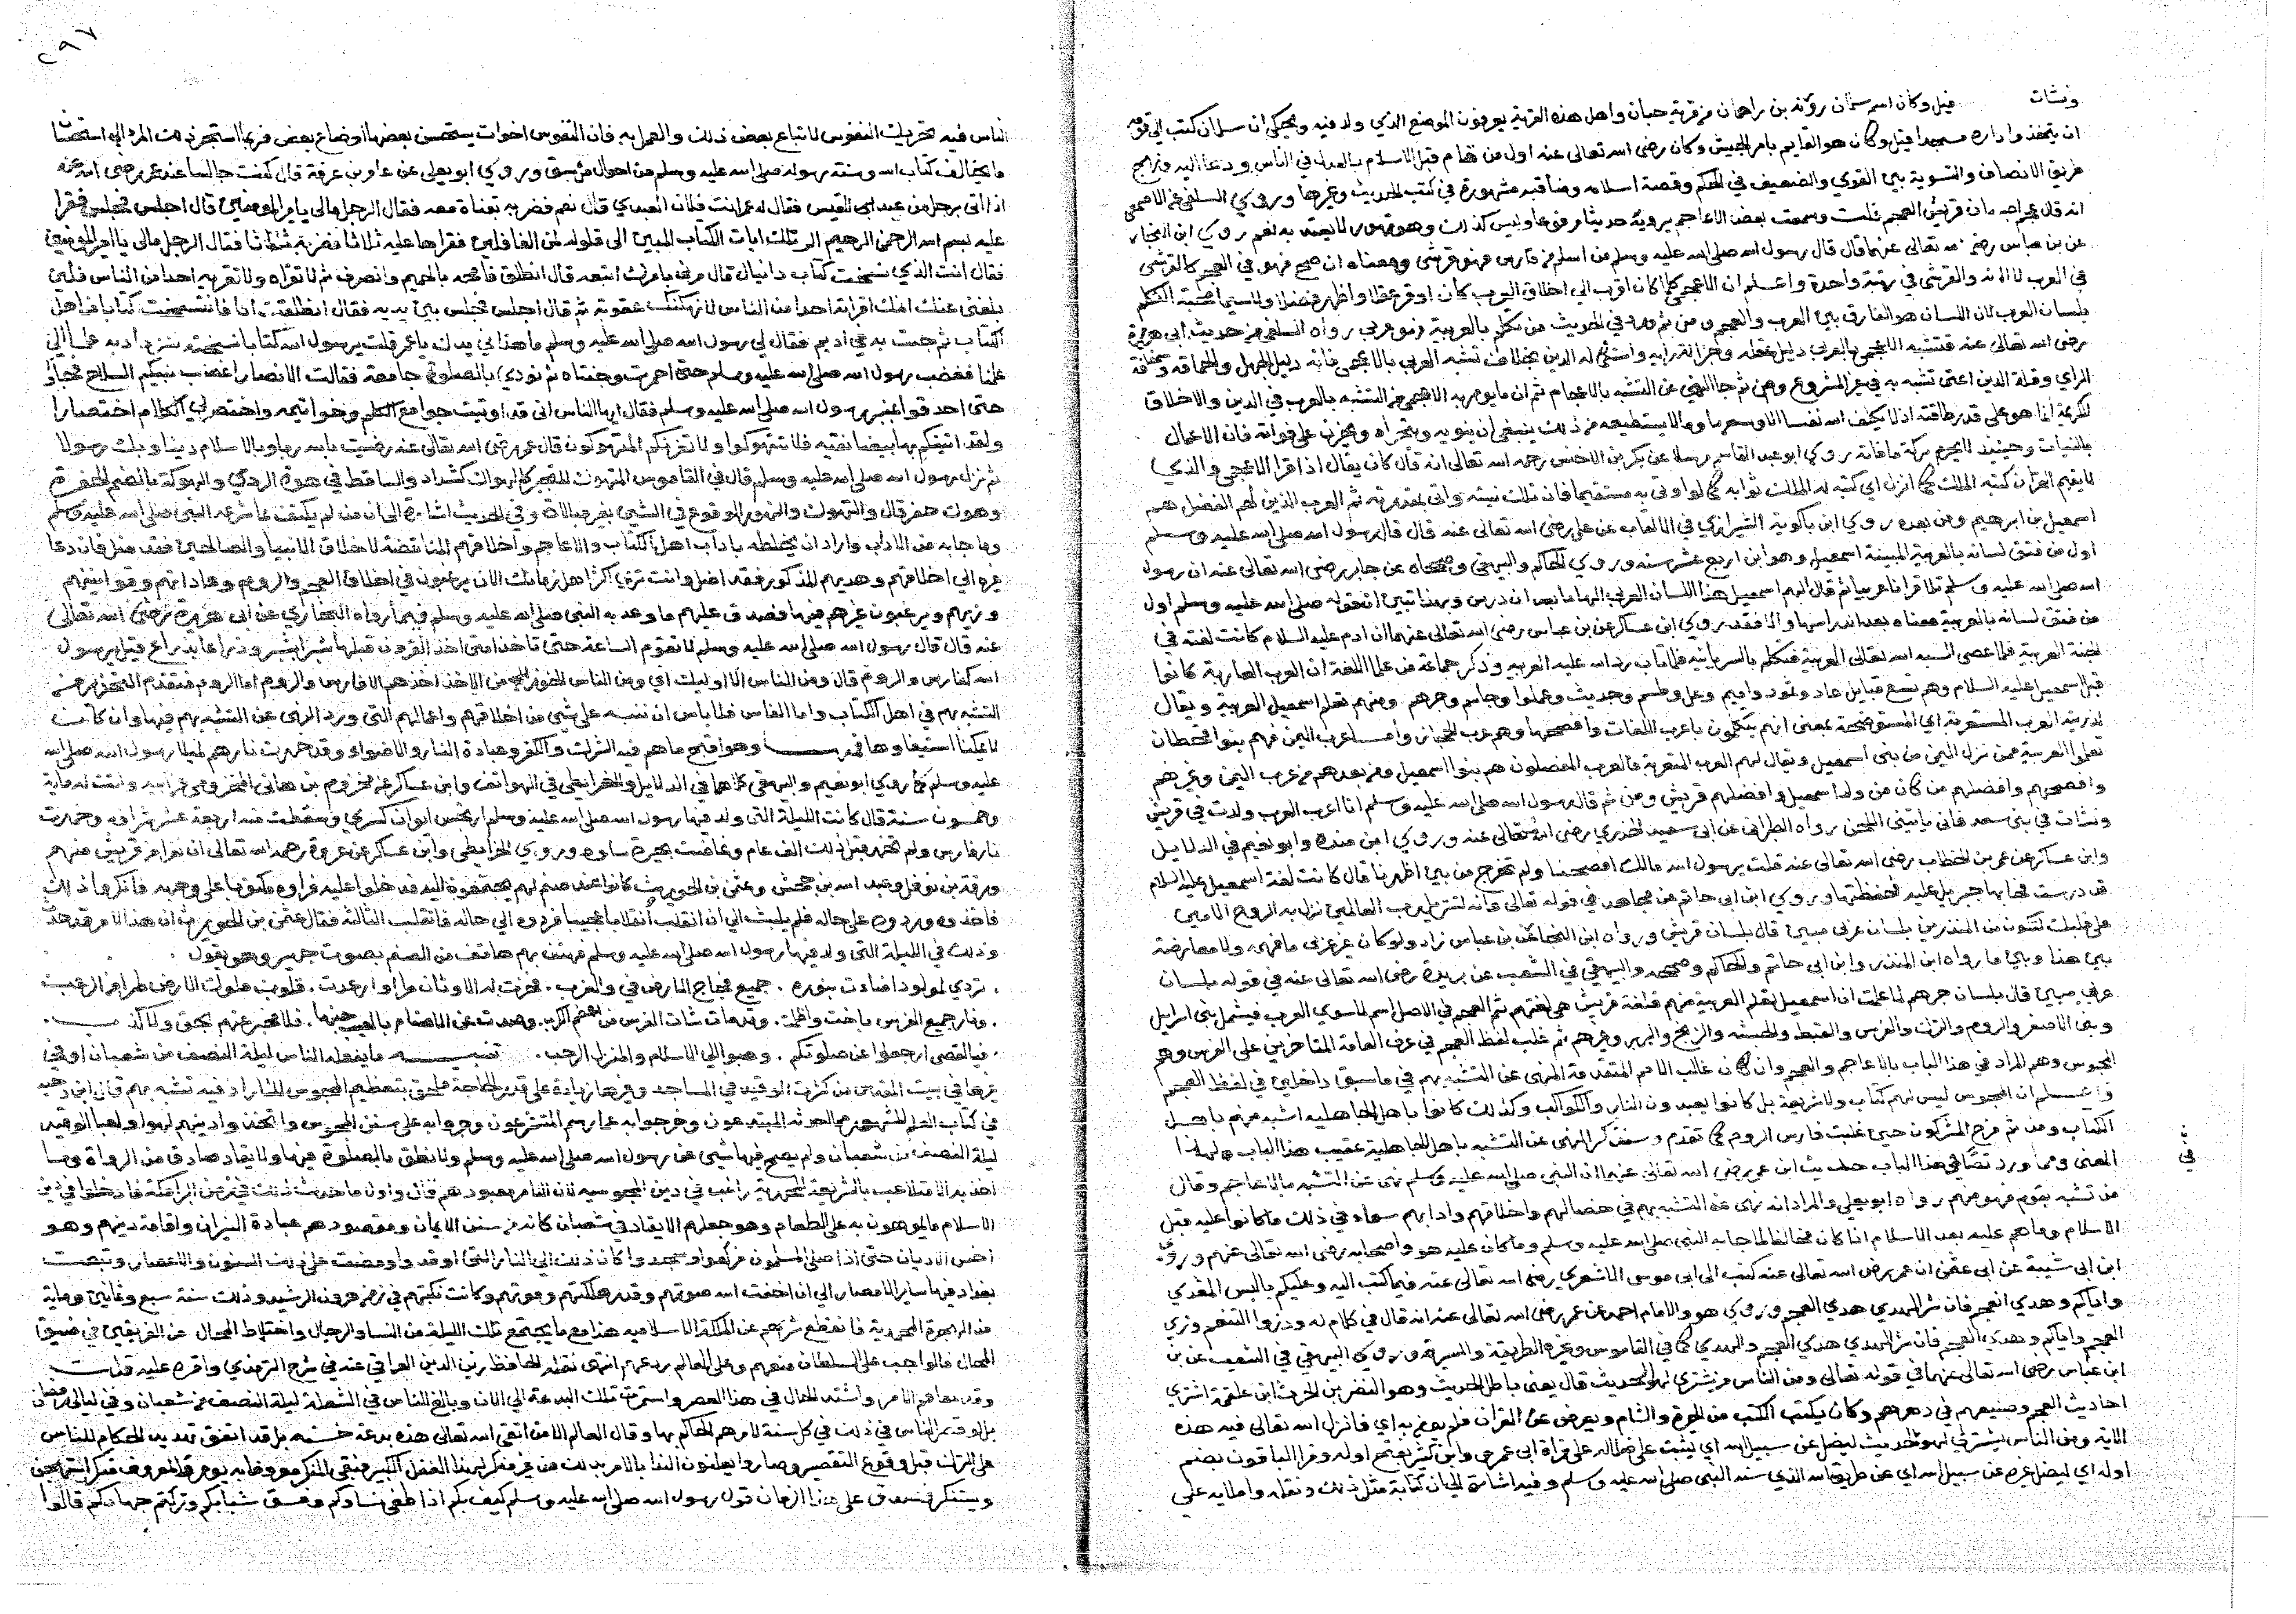 ونشات قيل وكان اسم سلمان روزبه بن من قرية حبان واهل هذه القرية يعرفون الموضع الذي ولد فيه ويحكى ان سلمان كتب الى قومه
ان يتخذوا داره مسجدا قيل وكان هو القايم بامر الجيش وكان رضي الله تعالى عنه اول من قام قبل الاسلام بالعدل في الناس ودعا اليه
طريق الانصاف والتسوية بين القوي والضعيف في الحكم وقصة اسلامه ومناقبه مشهورة في كتب الحديث وغيرها وروى السلفي عن الاصمعي
انه قال عجم اصبهان قريش العجم قلت وسمعت بعض الاعاجم يرويه حديثا مرفوعا وليس كذلك وهو لا يعتد به نعم روى ابن النجار
عن بن عباس رضي الله تعالى عنهما قال قال رسول الله صلى الله عليه وسلم من اسلم من فارس فهو قرشي ومعناه ان صح فهو في العجم كالقرشي
في العرب لا انه والقرشي في رتبة واحدة واعلم ان الاعجمي كلما كان اقرب الى اخلاق العرب كان اوفر عقلا واظهر فضلا ولا سيما محبة التكلم
بلسان العرب لان اللسان هو الفارق بين العرب والعجم ومن ثم ورد في الحديث من تكلم بالعربية فهو عربي رواه السلفي من حديث ابي هريرة
رضي الله تعالى عنه فتشبه الاعجمي بالعربي دليل عقله وجزالة رايه واستكماله الدين بخلاف تشبه العربي بالاعجمي فانه دليل الجهل والحماقة وسخافة
الراي وقلة الدين اعني تشبه به في غير المشروع ومن ثم جا النهي عن التشبه بالاعجام ثم ان ما يومر به الاعجمي من التشبه بالعرب في الدين والاخلاق
الكريمة انما هو على قدر طاقته اذ لا يكلف الله نفسا الا وسعها وما لا يستطيعه من ذلك ينبغي ان ينويه ويتحراه ويحزن على فواته فان الاعمال
بالنيات وحينئذ لا يحرم بركة ما فاته روى ابو عبد القاسم مرسلا عن بكر بن الاخنس رحمه الله تعالى انه قال كان يقال اذا قرا الاعجمي والذي
لا يقيم القران كتبه الملك كما انزل اي كتبه له الملك ثوابه كما لو اوتي به مستقيما فان تلك نيته واتى بمقدرته ثم العرب الذين لهم الفضل هم
اسمعيل بن ابراهيم ومن بعده روى ابن باكوية الشيرازي في الالقاب عن علي رضي الله تعالى عنه قال قال رسول الله صلى الله عليه وسلم
اول من فتق لسانه بالعربية المبينة اسمعيل وهو ابن اربع عشر سنة وروى الحاكم والبيهقي وصححاه عن جابر رضي الله تعالى عنه ان رسول
الله صلى الله عليه وسلم تلا قرانا عربيا ثم قال الهم اسمعيل هذا اللسان العربي الهاما بعد ان درس وبهذا تبين ان قوله صلى الله عليه وسلم اول
من فتق لسانه بالعربية معناه بعد اندراسها والا فقد روى ابن عساكر عن بن عباس رضي الله تعالى عنهما ان ادم عليه السلام كانت لغته في
الجنة العربية فلما عصى الله تعالى العربية فتكلم بالسريانية فلما تاب رد الله عليه العربيه وذكر جماعة من علما اللغة ان العرب العاربة كانوا
قبل اسمعيل عليه السلام وهم تسع قبايل عاد وثمود واميم وعبيل وطسم وجديس وعملوا وجاسم وجرهم ومنهم تعلم اسمعيل العربية ويقال
لذريته العرب المستعربة اي المستوضحة بمعنى انهم يتكلمون باعرب اللغات وافصحها وهم عرب الحجاز واما عرب اليمن فهم بنوا قحطان
تعلموا العربية ممن نزل اليمن من بني اسمعيل ويقال لهم العرب المتعربة فالعرب المفضلون هم بنوا اسمعيل ومن بعدهم من عرب اليمن وغيرهم
وافصحهم وافضلهم من كان من ولد اسمعيل وافضلهم قريش ومن ثم قال رسول الله صلى الله عليه وسلم انا اعرب العرب ولدت في قريش
ونشات في بني سعد فاني ياتيني اللحن رواه الطبراني عن ابي سعيد الخدري رضي الله تعالى عنه وروى ابن منده وابو نعيم في الدلايل
وابن عساكر عن عمر بن الخطاب رضي الله تعالى عنه قلت يرسول الله مالك افصحنا ولم تخرج من بين اظهرنا قال كانت لغة اسمعيل عليه السلام
قد درست فجا بها جبريل عليه فحفظتها وروى ابن ابي حاتم عن مجاهد في قوله تعالى وانه لتنزيل رب العالمين نزل به الروح الامين
على قلبك لتكون من المنذرين بلسان عربي مبين قال بلسان قريش ورواه ابن النجار عن بن عباس زاد ولو كان غير عربي ما فهموه ولا معارضة
بين هذا وبين ما رواه ابن المنذر وابن ابي حاتم والحاكم وصححه والبيهقي في الشعب عن بريدة رضي الله تعالى عنه في قوله بلسان
عربي مبين قال بلسان جرهم لما علمت ان اسمعيل تعلم العربية منهم فلغة قريش هي لغتهم ثم العجم في الاصل اسم لما سوى العرب فيشمل بني اسرايل
وبني الاصفر والروم والترك والفرس والقبط والحبشه والزنج والبربر وغيرهم ثم غلب لفظ العجم في عرف العامة المتاخرين على الفرس وهم
المجوس وهم المراد في هذا الباب بالاعاجم والعجم وان كان غالب الامم المتقدمة المنهي عن التشبه بهم في ما سبق داخلين في لفظ العجم
واعلم ان المجوس ليس لهم كتاب ولا شريعة بل كانوا يعبدون النار والكواكب وكذلك كانوا باهل الجاهلية اشبه منهم باهل
الكتاب ومن ثم فرح المشركون حين غلبت فارس الروم كما تقدم وسنذكر النهي عن التشبه باهل الجاهلية عقيب هذا الباب لهذا
المعنى ومما ورد نصا في هذا الباب حديث ابن عمر رضي الله تعالى عنهما ان النبي صلى الله عليه وسلم نهى عن التشبه بالاعاجم وقال
من تشبه بقوم فهو منهم رواه ابو يعلى والمراد انه نهى عن التشبه بهم في خصالهم واخلاقهم وادابهم سواء في ذلك ما كانوا عليه قبل
الاسلام وما هم عليه بعد الاسلام اذا كان مخالفا لما جا به النبي صلى الله عليه وسلم وما كان عليه هو واصحابه رضي الله تعالى عنهم وروى
ابن ابي شيبة عن ابي عثمن ان عمر رضي الله تعالى عنه كتب الى ابي موسى الاشعري رضي الله تعالى عنه فيما كتب اليه وعليكم باللبس المعدي
واياكم وهدي العجم فان شر الهدي هدي العجم وروى هو والامام احمد عن عمر رضي الله تعالى عنه انه قال في كلام له وذروا التنعم وزي
العجم واياكم وهدي العجم فان شر الهدي هدي العجم والهدي كما في القاموس وغيره الطريقة والسيرة وروى البيهقي في الشعب عن بن
ابن عباس رضي الله تعالى عنهما في قوله تعالى ومن الناس من يشتري لهو الحديث قال يعني باطل الحديث وهو النضر بن الحرث ابن علقمة اشترى
احاديث العجم وصنيعهم في دهرهم وكان يكتب الكتب من الحيرة والشام ويعرض عن القران فلم يومن به اي فانزل الله تعالى فيه هذه
الاية ومن الناس يشتري لهو الحديث ليضل عن سبيل الله اي ليثبت على ضلاله على قراة ابي عمرو وابن كثير بفتح اوله وقرا الباقون بضم
اوله اي ليضل غيره عن سبيل الله اي عن طريق الله الذي سنه النبي صلى الله عليه وسلم وفيه اشارة الى ان كتابة مثل ذلك ونقله واملايه على
في
٢٩٧
الناس فيه تحريك النفوس لاتباع بعض ذلك والعمل به فان النفوس اخوات يستحسن بعضها اوضاع بعض فربما استجر ذلك المرء الى استحسان
ما يخالف كتاب الله وسنة رسوله صلى الله عليه وسلم من احوال من سبق وروى ابو يعلى عن خالد بن عرفة قال كنت جالسا عند عمر رضي الله عنه
اذ اتي برجل من عبد القيس فقال له عمر انت فلان العبدي قال نعم فضربه بقناة معه فقال الرجل مالي يا امير المومنين قال اجلس فجلس فقرا
عليه بسم الله الرحمن الرحيم الر تلك ايات الكتاب المبين الى قوله لمن الغافلين فقراها عليه ثلاثا وضربه ثلاثا فقال الرجل مالي يا امير المومنين
فقال انت الذي نسخت كتاب دانيال قال مرني بامرك اتبعه قال انطلق فامحه بالحميم وانصرف ثم لا تقراه ولا تقريه احدا من الناس فلين
بلغني عنك انك اقراته احدا من الناس لانهكنك عقوبة ثم قال اجلس فجلس بين يديه فقال انطلقت انا فانتسخت كتابا من اهل
الكتاب ثم جيت به في اديم فقال لي رسول الله صلى الله عليه وسلم ما هذا في يدك يا عمر قلت يرسول الله كتابا نسخته لنزداد به علما الى
علمنا فغضب رسول الله صلى الله عليه وسلم حتى احمرت وجنتاه ثم نودي بالصلوة جامعة فقالت الانصار اغضب نبيكم السلاح فجاؤا
حتى احدقوا بمنبر رسول الله صلى الله عليه وسلم فقال ايها الناس اني قد اوتيت جوامع الكلم وخواتيمه واختصر لي الكلام اختصارا
ولقد اتيتكم بها بيضا نقيه فلا تتهوكوا ولا تغرنكم المتهوكون قال عمر رضي الله تعالى عنه رضيت بالله ربا وبالاسلام دينا وبك رسولا
ثم نزل رسول الله صلى الله عليه وسلم قال في القاموس المتهوك المتحير كالهواك كشداد والساقط في هوة الردي والهوكة بالضم الحفرة
وهوك حفر قال والتهوك والتهور الوقوع في الشي بغير مبالاة وفي الحديث اشارة الى ان من لم يكتف بما شرعه النبي صلى الله عليه وسلم
وما جا به من الاداب واراد ان يخلطه باداب اهل الكتاب والاعاجم واخلاقهم المناقضة لاخلاق الانبيا والصالحين فقد ضل فان دعا
غيره الى اخلاقهم وهديهم المذكور فقد اضل وانت ترى اكثر اهل زمانك الان يرغبون في اخلاق العجم والروم وعاداتهم وقوانينهم
وزيهم ويرغبون غيرهم فيها فصدق عليهم ما وعد به النبي صلى الله عليه وسلم فيما رواه البخاري عن ابي هريرة رضي الله تعالى
عنه قال قال رسول الله صلى الله عليه وسلم لا تقوم الساعة حتى تاخذ امتي اخذ القرون قبلها شبرا بشبر وذراعا بذراع قيل يرسول
الله كفارس والروم قال ومن الناس الا اوليك اي ومن الناس من الاخذ اخذهم الا فارس والروم اما الروم فتقدم التحذير من
التشبه بهم في اهل الكتاب واما الفاس فلا باس ان ننبه على شي من اخلاقهم واعمالهم التي ورد النهي عن التشبه بهم فيها وان كانت
لا يمكننا استيفاوها وهو اقبح ما هم فيه الشرك والكفر وعبادة النار والاضواء وقد خمدت نارهم لميلاد رسول الله صلى الله
عليه وسلم كما روى ابو نعيم والبيهقي كلاهما في الدلايل والخرايطي في الهواتف وابن عساكر عن مخزوم بن هاني المخزومي عن ابيه واتت له ماية
وخمسون سنة قال كانت الليلة التي ولد فيها رسول الله صلى الله عليه وسلم ارتجس ايوان كسرى وسقطت منه اربعة عشر شرافه وخمدت
نار فارس ولم تخمد قبل ذلك الف عام وغاضت بحيرة ساوه وروى الخرايطي وابن عساكر عن عروة رحمه الله تعالى ان نفرا من قريش منهم
ورقة بن نوفل وعبد الله بن جحش وعثمن بن الحويرث كانوا عند صنم لهم يجتمعون اليه فدخلوا عليه فراوه مكبوبا على وجهه فانكروا ذلك
فاخذوه وردوه على حاله فلم يلبث الى ان انقلب انقلابا عجيبا فردوه الى حاله فانقلب الثالثة فقال عثمن بن الحويرث ان هذا الامر قد حدث
وذلك في الليلة التي ولد فيها رسول الله صلى الله عليه وسلم فهتف بهم هاتف من الصنم بصوت جهير وهو يقول
تردى لمولود اضاءت بنوره . جميع فجاج الارض في والغرب . فخرت له الاوثان طرا وارعدت . قلوب ملوك الارض طرا من الرعب
ونار جميع الفرس باخت واظلمت . وقد بات شاه الفرس في اعظم الكرب . وصدت عن الاصنام بالغيب جنها . فلا مخبر عنهم بحق ولا كذب
فيا لقصي ارجعوا عن ضلولتكم . وهبوا الى الاسلام والمنزل الرحب . تنبيه ما يفعله الناس ليلة النصف من شعبان او في
غيرها في بيت المقدس من كثرت الوقيد في المساجد وغيرها زيادة على قدر الحاجة ملحق بتعظيم المجوس للنار اذ فيه تشبه بهم قال ابن دحيه
في كتاب العلم المشهور مما احدثه المبتدعون وخرجوا به عما رسم المتشرعون وجروا به على سنن المجوس واتخذوا دينهم لهوا ولعبا الوقيد
ليلة النصف من شعبان ولم يصح فيها شي عن رسول الله صلى الله عليه وسلم ولا نطق بالصلوة فيها ولا يقاد صادق من الرواة وما
احدثه الا متلاعب بالشريعة المحمدية راغب في دين المجوسيه لان النار معبودهم قال واول ما حدث ذلك في زمن البرامكة فادخلوا في دين
الاسلام ما يموهون به على الطعام وهو جعلهم الايقاد في شعبان كانه من سنن الايمان ومقصودهم عبادة النيران واقامة دينهم وهو
اخس الاديان حتى اذا صلى المسلمون فركعوا وسجدوا كان ذلك الى النار التي اوقدوا ومضت على ذلك السنون والاعصار وتبعت
بغداد فيها ساير الامصار الى ان اخفت الله صوتهم وقدر هلكتهم وموتهم وكانت نكبتهم في زمن هرون الرشيد وذلك سنة سبع وثمانين وماية
من الهجرة المحمدية فانقطع شرهم عن المملكة الاسلاميه هذا مع ما يجتمع تلك الليلة من النساء والرجال واختلاط المجال عن الفريقين في ضيق
المجال فالواجب على السلطان منعهم وعلى العالم ردعهم انتهى نقله الحافظ زين الدين العراقي عنه في شرح الترمذي واقره عليه قلت
وقد تفاقم الامر واشتد الحال في هذا العصر واستمرت تلك البدعة الى الان وبالغ الناس في الشعلة ليلة النصف من شعبان وفي ليالي رمضان
بل الناس في ذلك في كل سنة لامرهم الحاكم بها وقال العالم الا من اتقى الله تعالى هذه بدعة حسنه بل قد اتفق تهديد الحكام للناس
على الترك قبل وقوع التقصير وصاروا يعلنون الندا بالامر بذلك من غير منكر لهذا الفعل الكبير فبقي المنكر معروفا به يومر والمعروف منكرا يستهجن
ويستنكر فصدق على هذا الزمان قول رسول الله صلى الله عليه وسلم كيف بكم اذا طغى نساوكم وفسق شبابكم وتركتم جهادكم قالوا